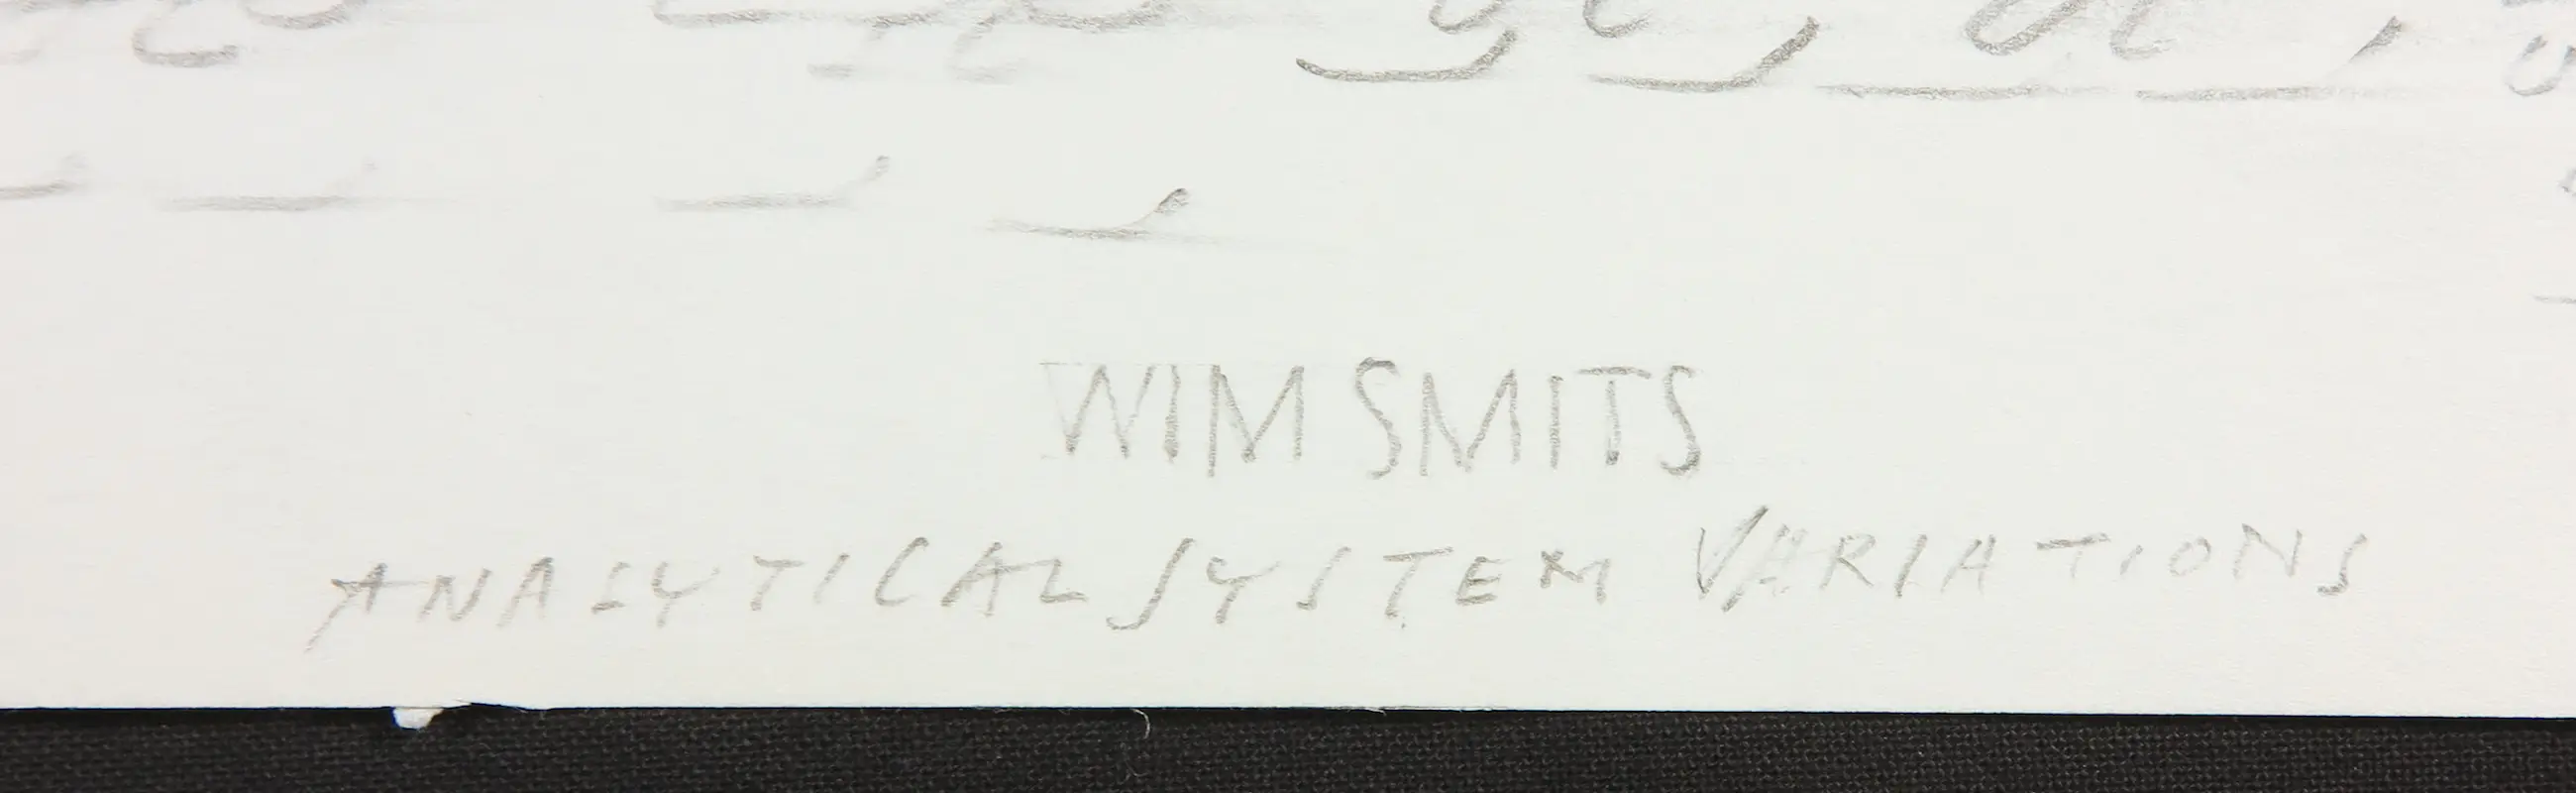 WIM SMITS
ANALYTICAL SYSTEM VARIATIONS